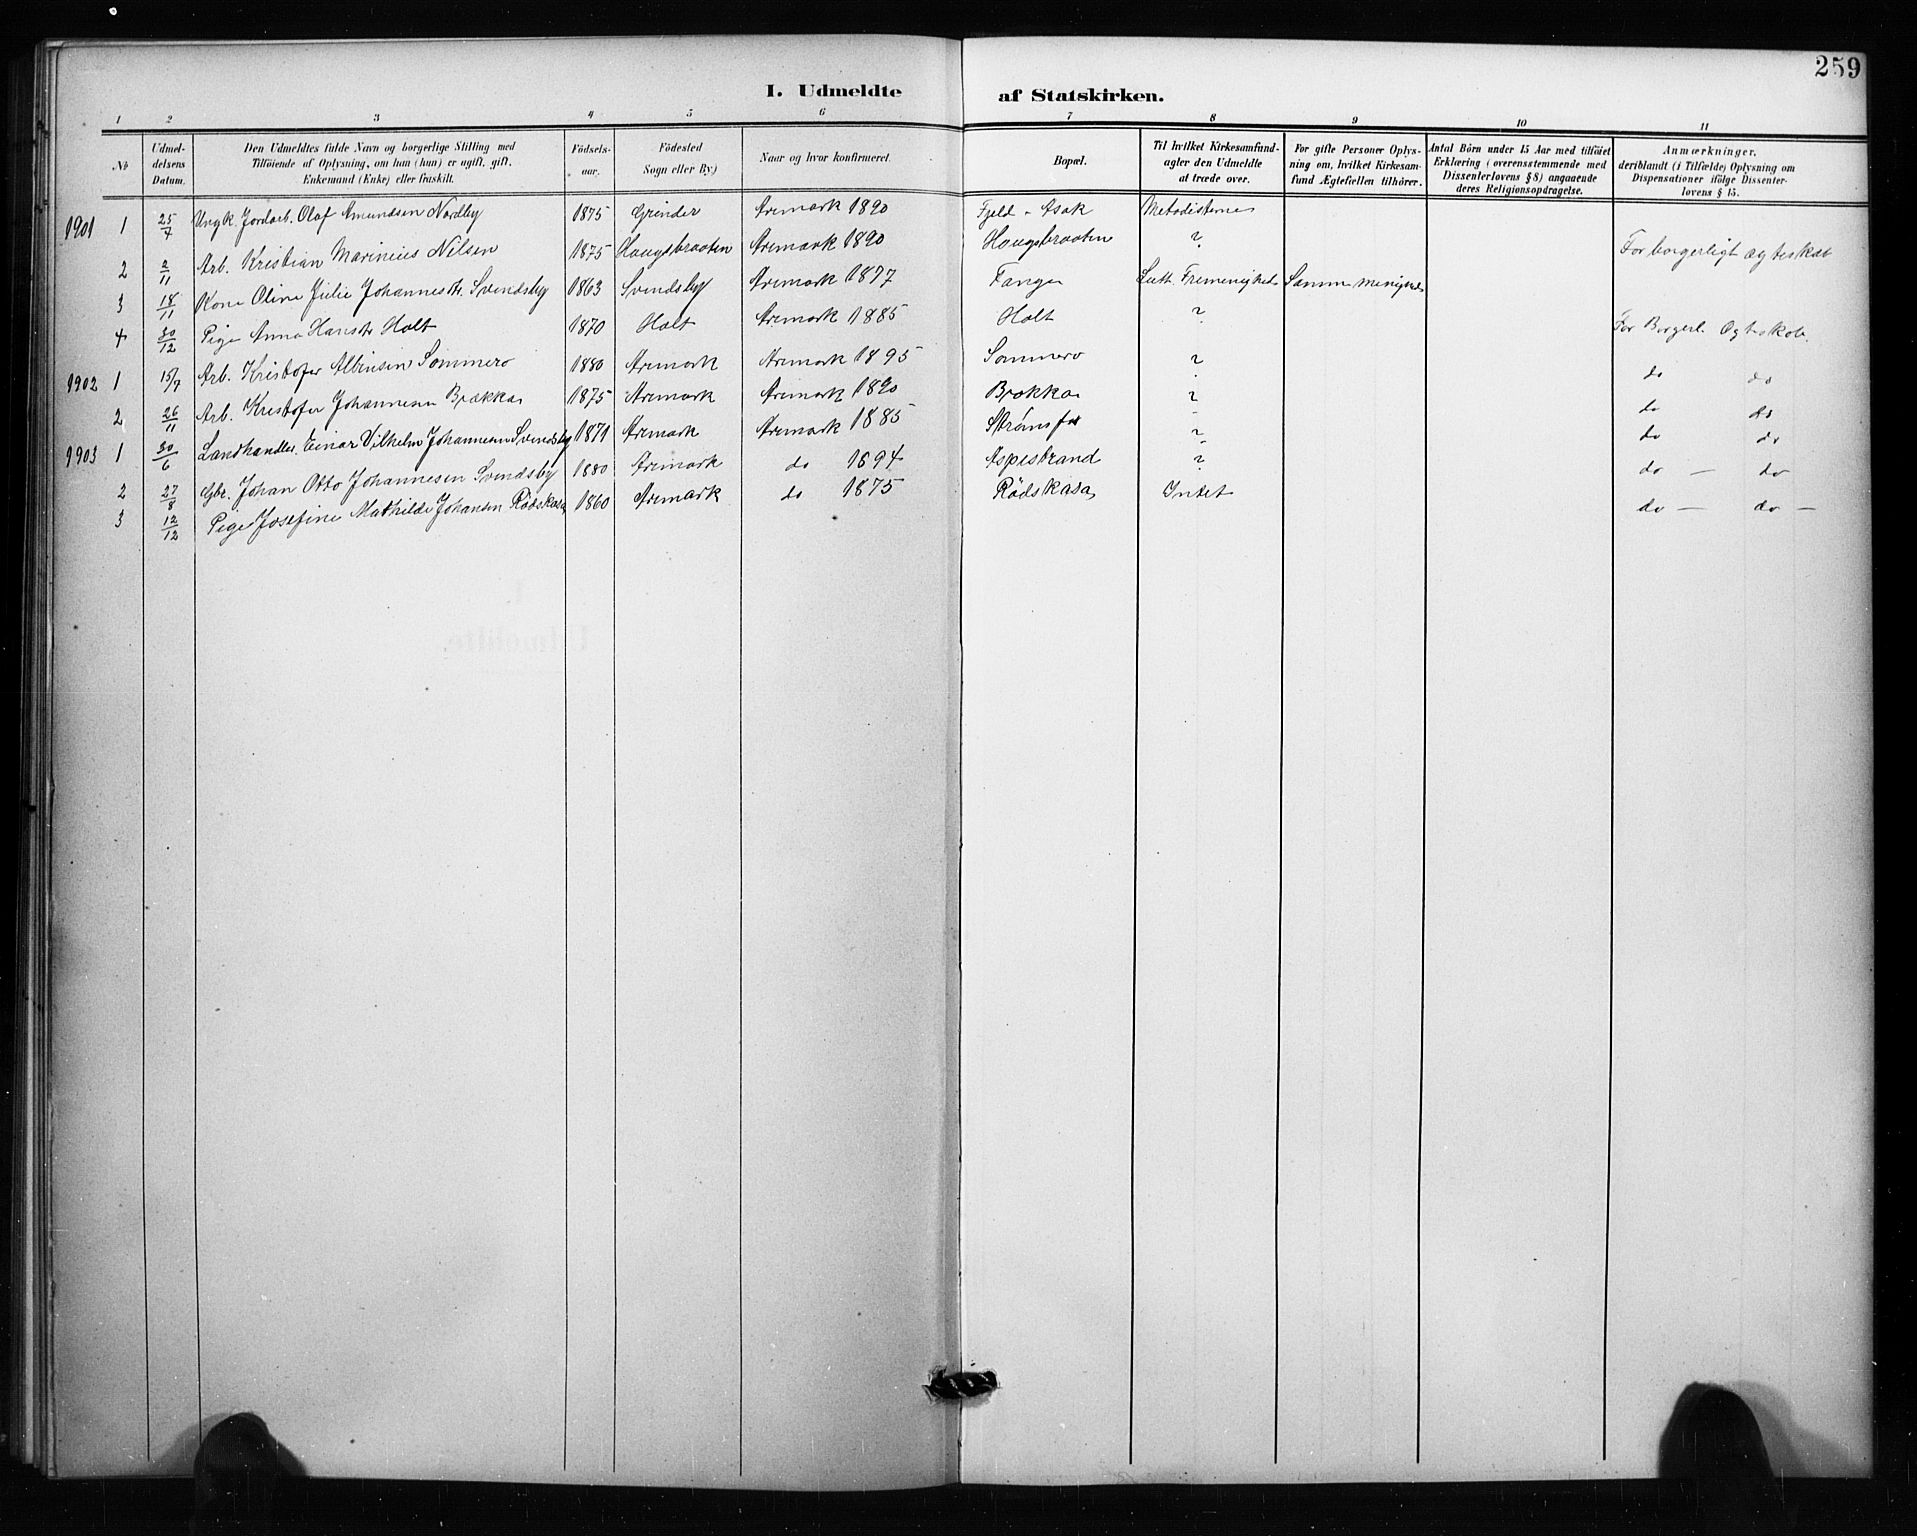 259
I. Udmeldte af Statskirken.
1 2 3 4 5 6 7 8 9 10 11
No
Udmel-
delsens
Datum.
Den Udmeldtes fulde Navn og borgerlige Stilling med
Tilföiende af Oplysning, om han (hun) er ugift, gift,
Enkemand (Enke) eller fraskilt.
Födsels-
aar.
Födested
Sogn eller By)
Naar og hvor konfirmeret.
Bopæl.
Til hvilket Kirkesamfund-
agter den Udmeldte
at træde over.
For gifte Personer Oplys-
ning om, hvilket Kirkesam-
fund Ægtefællen tilhörer.
Antal Börn under 15 Aar med tilföiet
Erklæring (overensstemmende med
Dissenterlovens § 8) angaaende
deres Religionsopdragelse.
Anmærkninger,
deriblandt (i Tilfælde) Oplysning om
Dispensationer ifölge Dissenter-
lovens § 15.
1901 1 25/7 Ungk. Jordarb. Olaf Amundsen Nordby 1875 Grinder Aremark 1890 Fjeld - Asak Metodisterne
2 2/11 Arb. Kristian Marinius Nilsen 1875 Haugsbraaten Aremark 1890 Haugsbraaten ? For borgerligt ægteskab
3 18/11 Kone Oline Julie Johannesdtr. Svendsby 1863 Svendsby Aremark 1877 Tangen Luth. Frimenighed Samme menighed
4 30/12 Pige Anna Hansdtr Holt 1870 Holt Aremark 1885 Holt ? For Borgerl. Ægteskab.
1902 1 15/7 Arb. Kristofer Albinsen Sommero 1880 Aremark Aremark 1895 Sommero ? do do
2 26/11 Arb. Kristofer Johannesen Brække 1875 Aremark Aremark 1890 Brække ? do do
1903 1 30/6 Landhandler Einar Vilhelm Johannesen Svendsby 1871 Aremark Aremark 1885 ? do do
2 27/8 Gbr. Johan Otto Johannesen Svendsby 1880 Aremark do 1894 Aspestrand ? do — do
3 12/12 Pige Josefine Mathilde Johansen Rödskasa 1860 Aremark do 1875 Rödskasa Intet do — do —